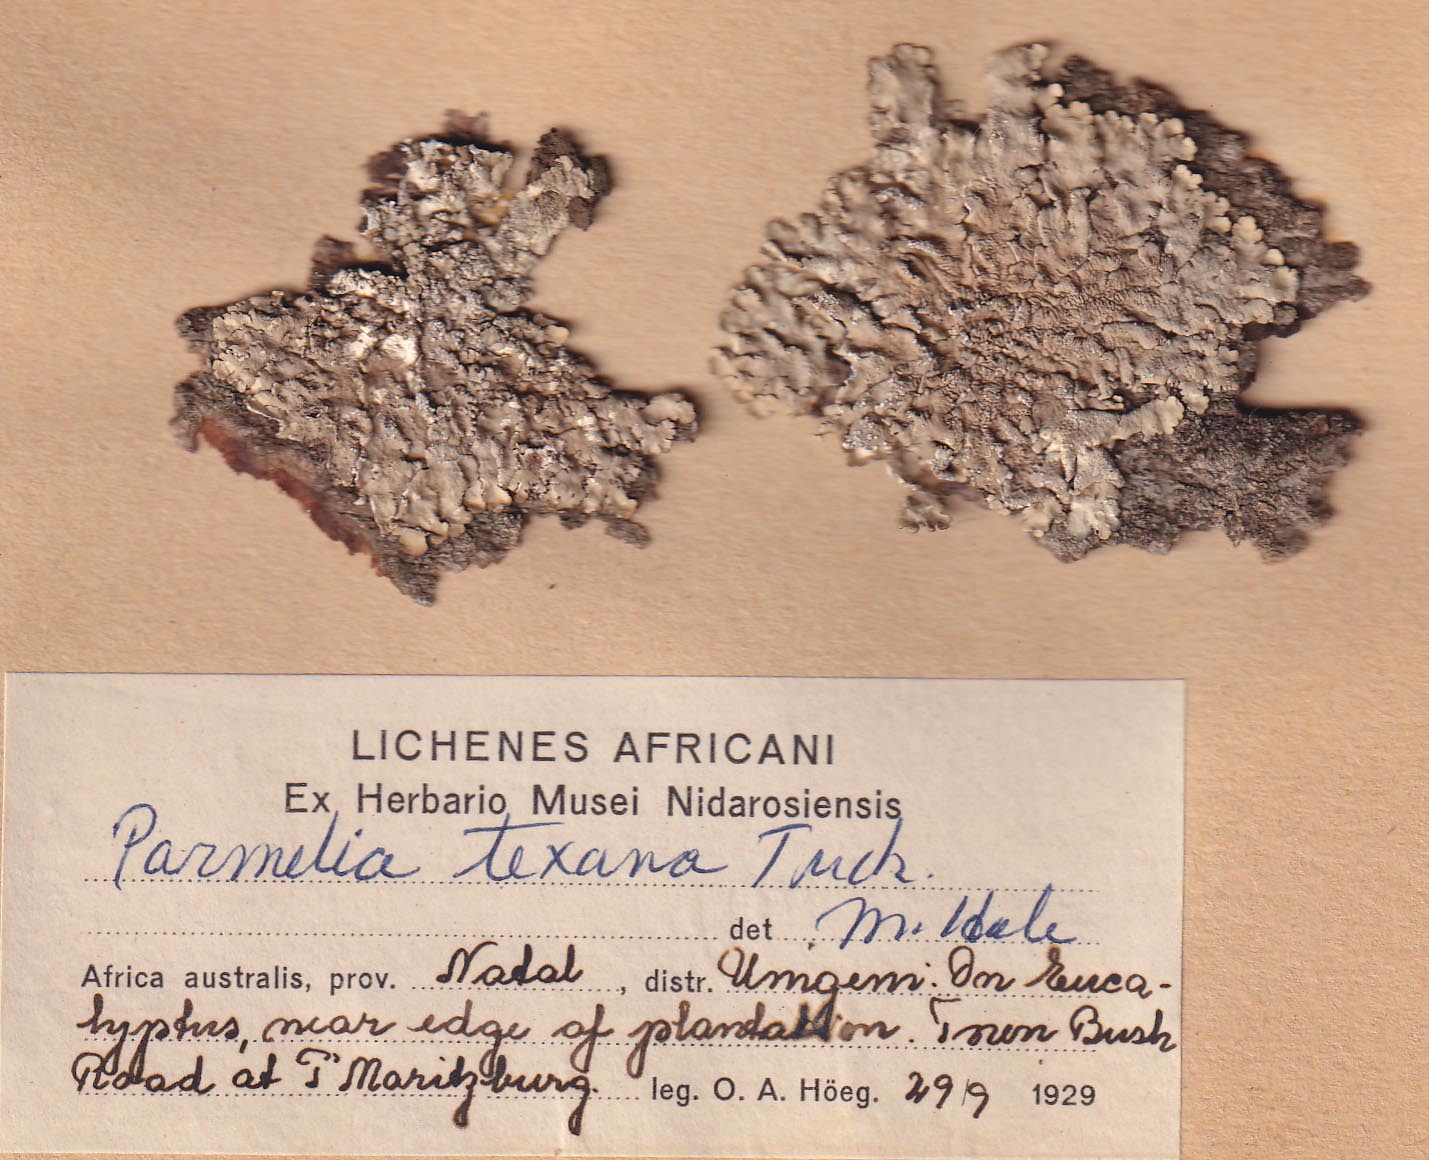 LICHENES AFRICANI
Ex Herbario Musei Nidarosiensis
Parmelia texana Tuck.
det M. Hale
Africa australis, prov. Natal, distr. Umgeni. On Euca-
lyptus, near edge of plantation. Town Bush
Road at P Maritzburg. leg. O. A. Höeg. 29/9 1929